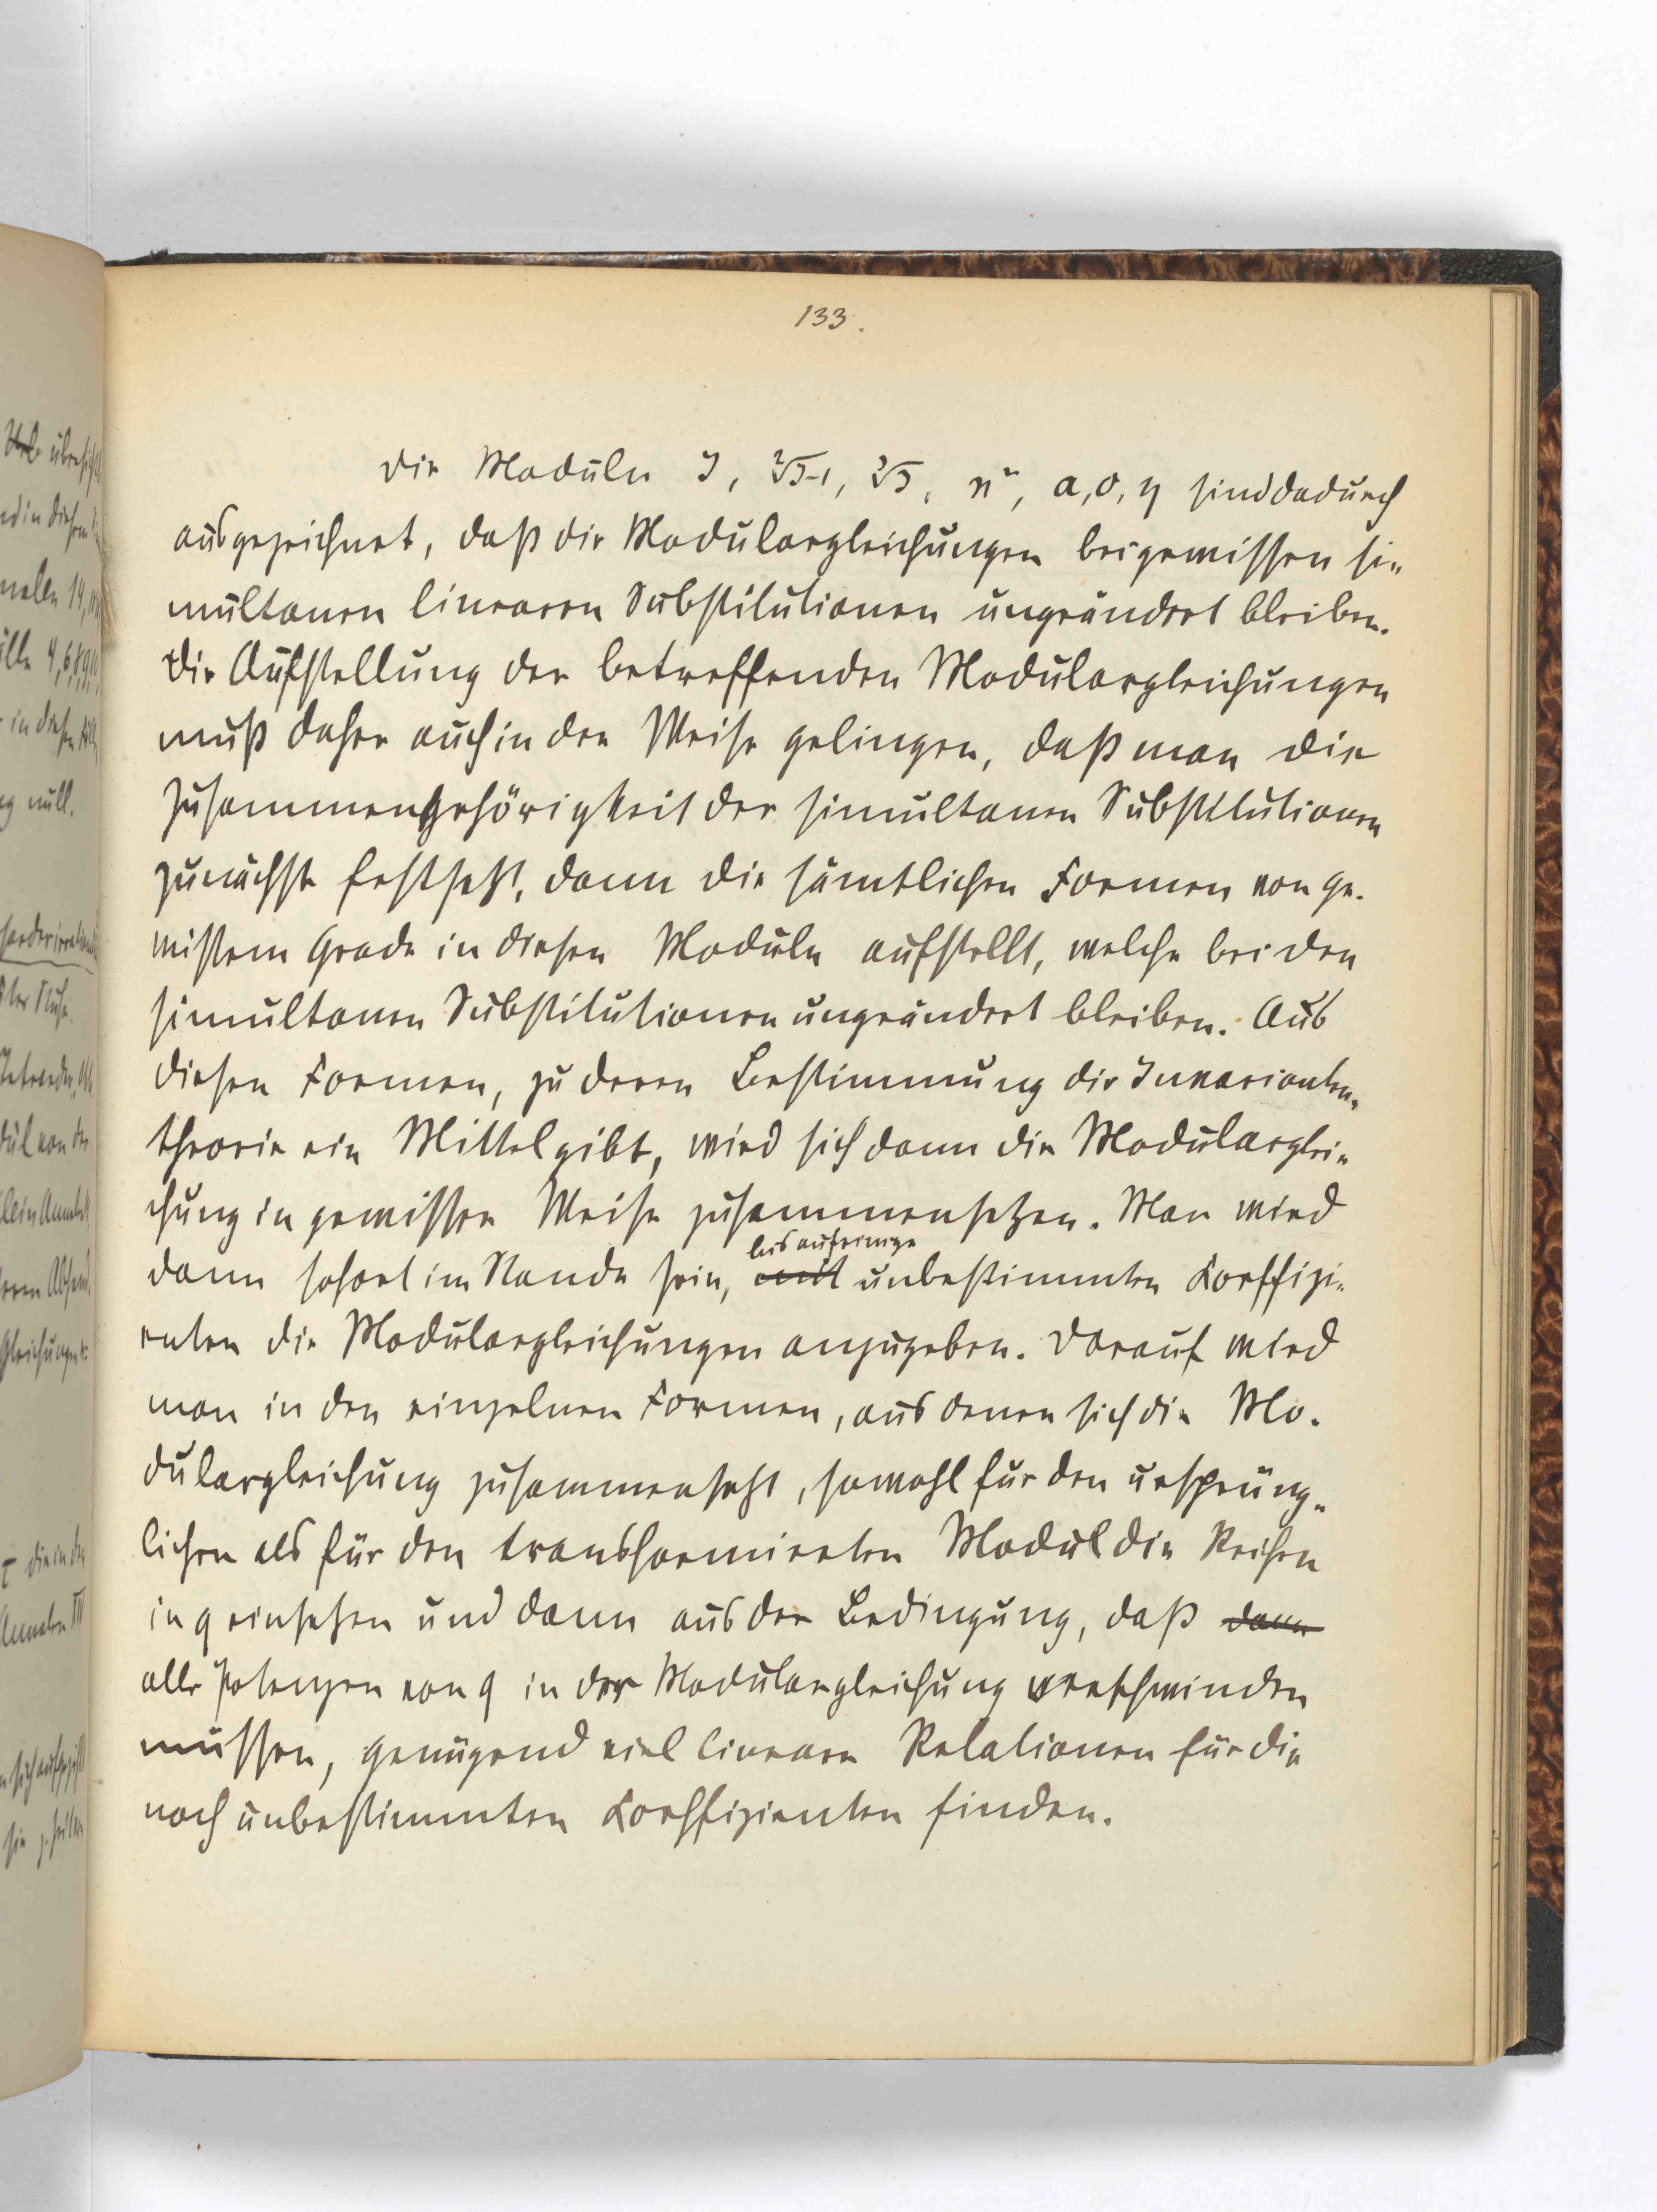 133.
Die Moduln J, ²√J-1, ³√J, n'', a, o, η sind dadurch
ausgezeichnet, daß die Modulargleichungen bei gewissen si-
multanen linearen Substitutionen ungeändert bleiben.
Die Aufstellung der betreffenden Modulargleichungen
muß daher auch in der Weise gelingen, daß man die
Zusammengehörigkeit der simultanen Substitutionen
zunächst festsetzt, dann die sämtlichen Formen von ge-
wissem Grade in diesen Moduln aufstellt, welche bei den
simultanen Substitutionen ungeändert bleiben. Aus
diesen Formen, zu deren Bestimmung die Invarianten-
theorie ein Mittel gibt, wird sich dann die Modularglei-
chung in gewisser Weise zusammensetzen. Man wird
bis auf einige
dann sofort im Stande sein, mit unbestimmten Koeffizi-
enten die Modulargleichungen anzugeben. Darauf wird
man in den einzelnen Formen, aus denen sich die Mo-
dulargleichung zusammensetzt, sowohl für den ursprüng-
lichen als für den transformierten Modul die Reihen
in q einsetzen und dann aus der Bedingung, daß dann
alle Potenzen von q in der Modulargleichung verschwinden
müssen, genügend viel lineare Relationen für die
noch unbestimmten Koeffizienten finden.